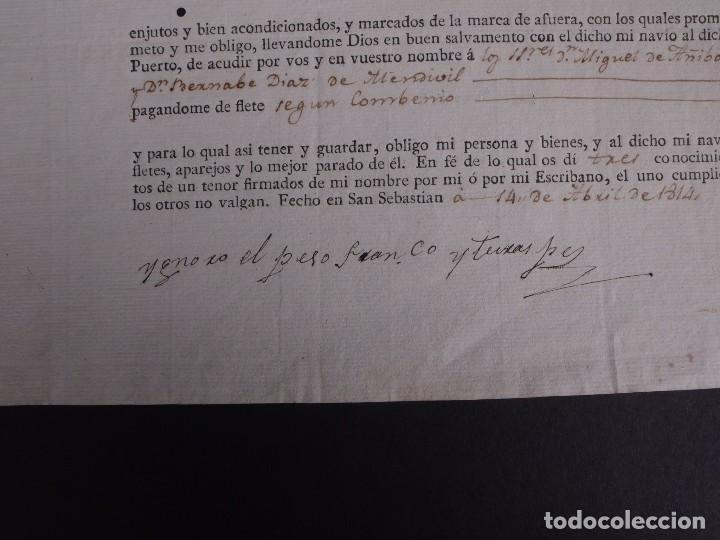 enjutos y bien acondicionados, y marcados de la marca de afuera, con los quales prom
meto y me obligo, llevandome Dios en buen salvamento con el dicho mi navío al dich
Puerto, de acudir por vos y en vuestro nombre á los Sres Dn Miguel de Añibar
y Dn Bernabe Diaz de Mendivil
pagandome de flete segun Combenio
y para lo qual asi tener y guardar, obligo mi persona y bienes, y al dicho mi nav
fletes, aparejos y lo mejor parado de él. En fé de lo qual os dí tres conocimi
tos de un tenor firmados de mi nombre por mi ó por mi Escribano, el uno cumpli
los otros no valgan. Fecho en San Sebastian á 14, de Abril de 1814,
ygnoro el peso Fran.Co
todocoleccion